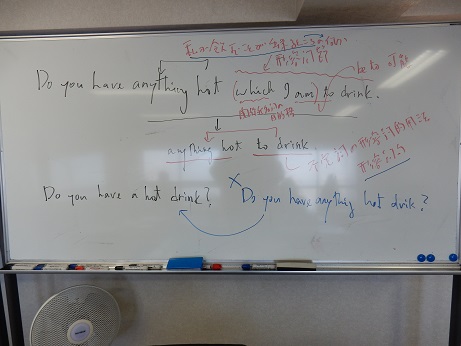 形容詞節
be to 可能
Do you have anything hot (which I am) to drink.
anything hot to drink
不定詞の形容詞的用法
形容詞句
Do you have a hot drink?
X Do you have anything hot drink?